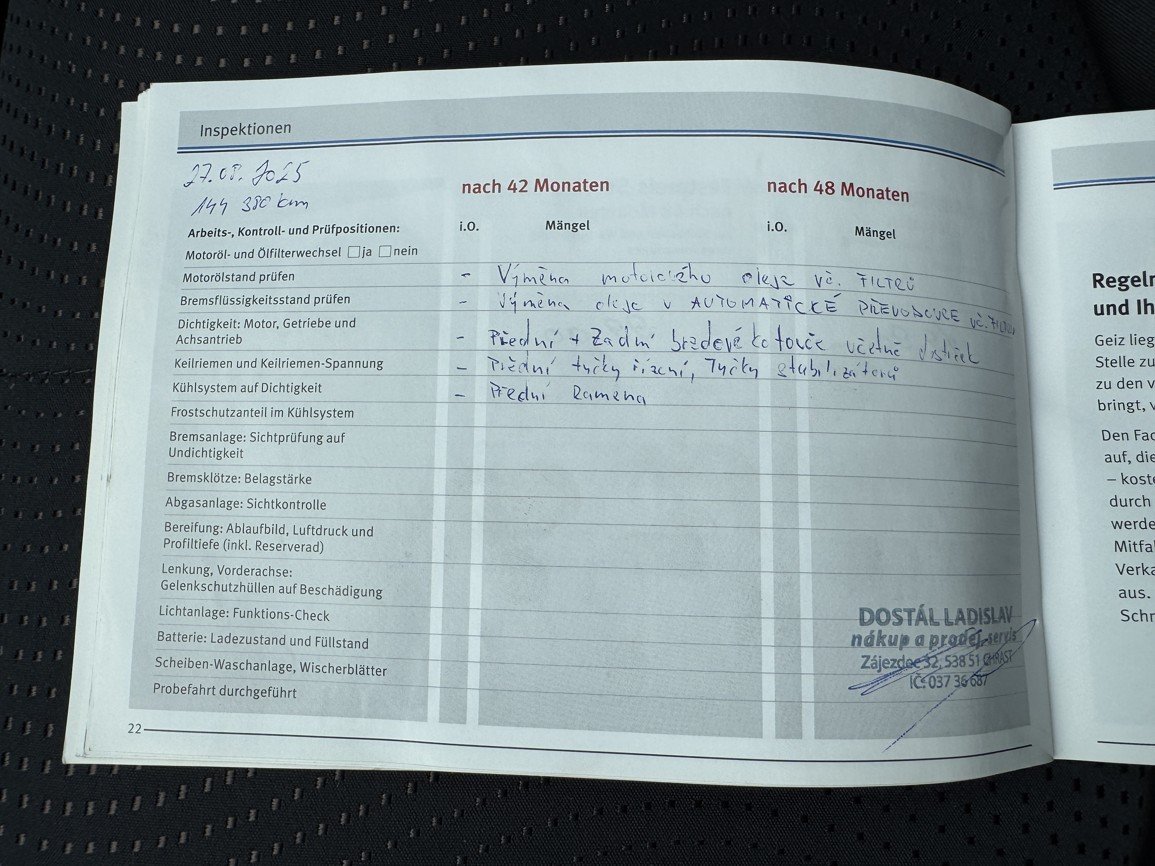 Inspektionen
27.08.2025
144 380 km
nach 42 Monaten
nach 48 Monaten
i.O. Mängel
i.O. Mängel
Arbeits-, Kontroll- und Prüfpositionen:
Motoröl- und Ölfilterwechsel ☐ja ☐nein
Motorölstand prüfen
- Výměna motorového oleje vč. FILTRŮ
Bremsflüssigkeitsstand prüfen
- Výměna oleje v AUTOMATICKÉ PŘEVODOVCE vč. FILTRU
Dichtigkeit: Motor, Getriebe und
Achsantrieb
- Přední + Zadní brzdové kotouče včetně destiček
Keilriemen und Keilriemen-Spannung
- Přední tyčky řízení, Tyčky stabilizátorů
Kühlsystem auf Dichtigkeit
- Přední Ramena
Frostschutzanteil im Kühlsystem
Bremsanlage: Sichtprüfung auf
Undichtigkeit
Bremsklötze: Belagstärke
Abgasanlage: Sichtkontrolle
Bereifung: Ablaufbild, Luftdruck und
Profiltiefe (inkl. Reserverad)
Lenkung, Vorderachse:
Gelenkschutzhüllen auf Beschädigung
Lichtanlage: Funktions-Check
Batterie: Ladezustand und Füllstand
Scheiben-Waschanlage, Wischerblätter
Probefahrt durchgeführt
DOSTÁL LADISLAV
nákup a prodej, servis
Zájezdec 32, 538 51 CHRAST
IČ: 037 36 687
22
Regeln
und Ih
Geiz lieg
Stelle zu
zu den v
bringt, v
Den Fac
auf, die
– koste
durch
werde
Mitfa
Verka
aus.
Schr